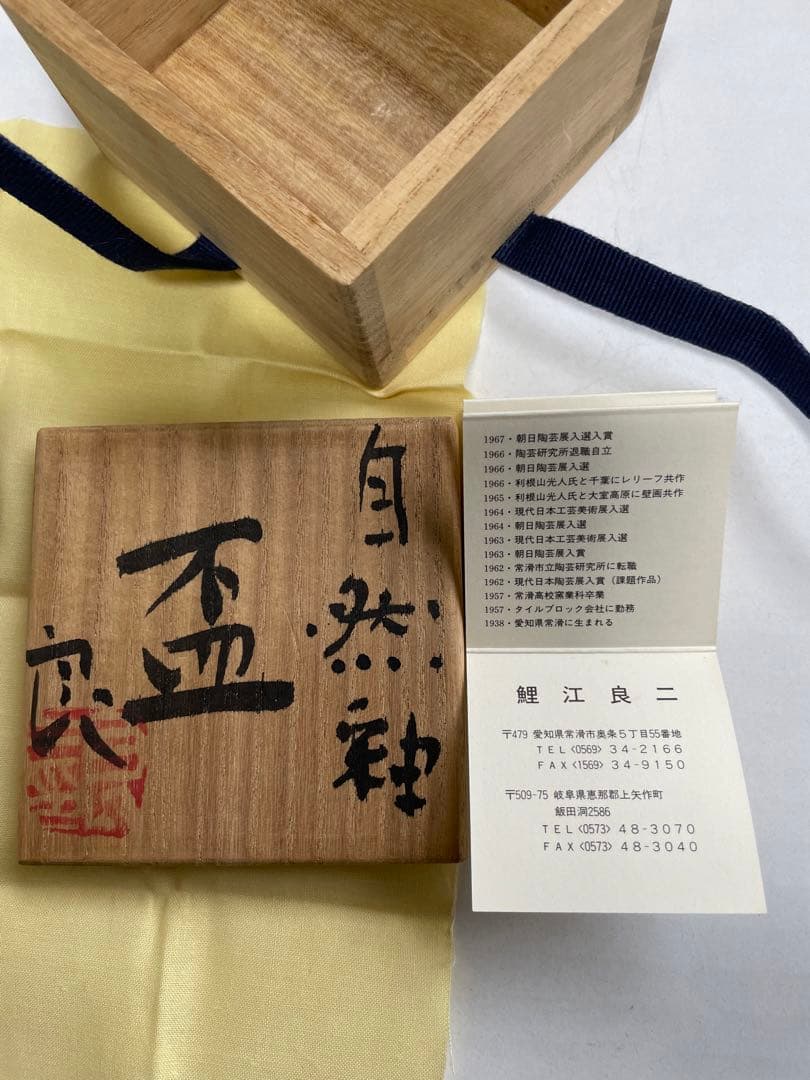 自然釉
盃
良二
1967・朝日陶芸展入選入賞
1966・陶芸研究所退職自立
1966・朝日陶芸展入選
1966・利根山光人氏と千葉にレリーフ共作
1965・利根山光人氏と大室高原に壁画共作
1964・現代日本工芸美術展入選
1964・朝日陶芸展入選
1963・現代日本工芸美術展入選
1963・朝日陶芸展入賞
1962・常滑市立陶芸研究所に転職
1962・現代日本陶芸展入賞（課題作品）
1957・常滑高校窯業科卒業
1957・タイルブロック会社に勤務
1938・愛知県常滑に生まれる
鯉江良二
〒479 愛知県常滑市奥条5丁目55番地
TEL<0569> 34-2166
FAX<1569> 34-9150
〒509-75 岐阜県恵那郡上矢作町
飯田洞2586
TEL<0573> 48-3070
FAX<0573> 48-3040